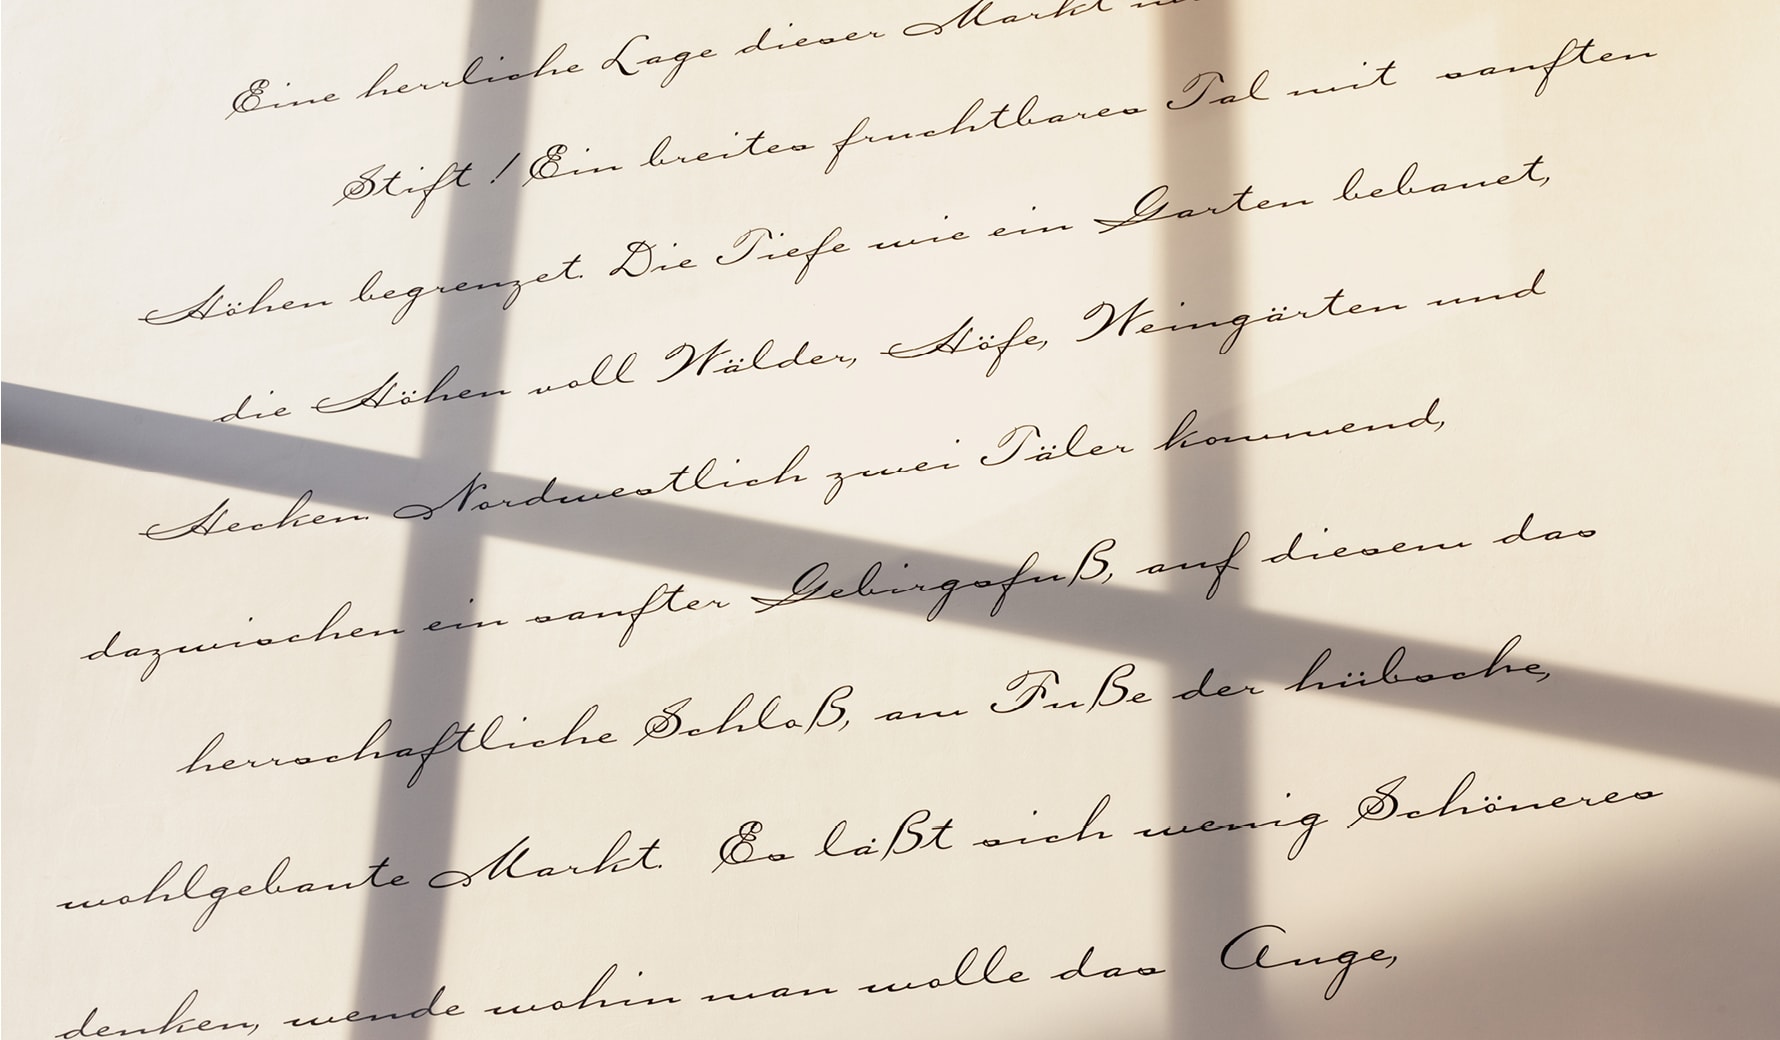 Eine herrliche Lage dieser Markt
Stift! Ein breites fruchtbares Tal mit sanften
Höhen begrenzet. Die Tiefe wie ein Garten bebauet,
die Höhen voll Wälder, Höfe, Weingärten und
Hecken. Nordwestlich zwei Täler kommend,
dazwischen ein sanfter Gebirgsfuß, auf diesem das
herrschaftliche Schloß, am Fuße der hübsche,
wohlgebaute Markt. Es läßt sich wenig Schöneres
denken, wende wohin man wolle das Auge,